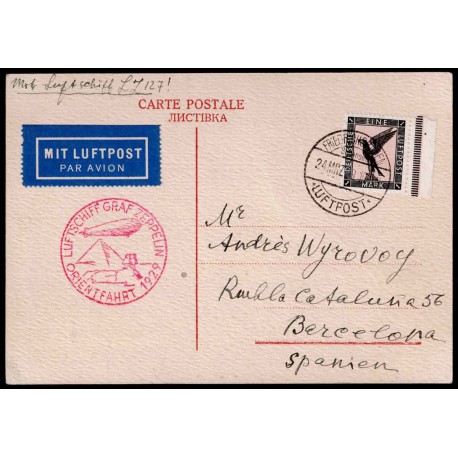 Mit Luftschiff LZ 127!
CARTE POSTALE
ЛИСТІВКА
MIT LUFTPOST
PAR AVION
EINE
DEUTSCHE
LUFTPOST
MARK
LUFTPOST
LUFTSCHIFF GRAF ZEPPELIN
ORIENTFAHRT 1929
Mr
Andrès Wyrovoy
Rambla Cataluña 56
Barcelona
Spanien